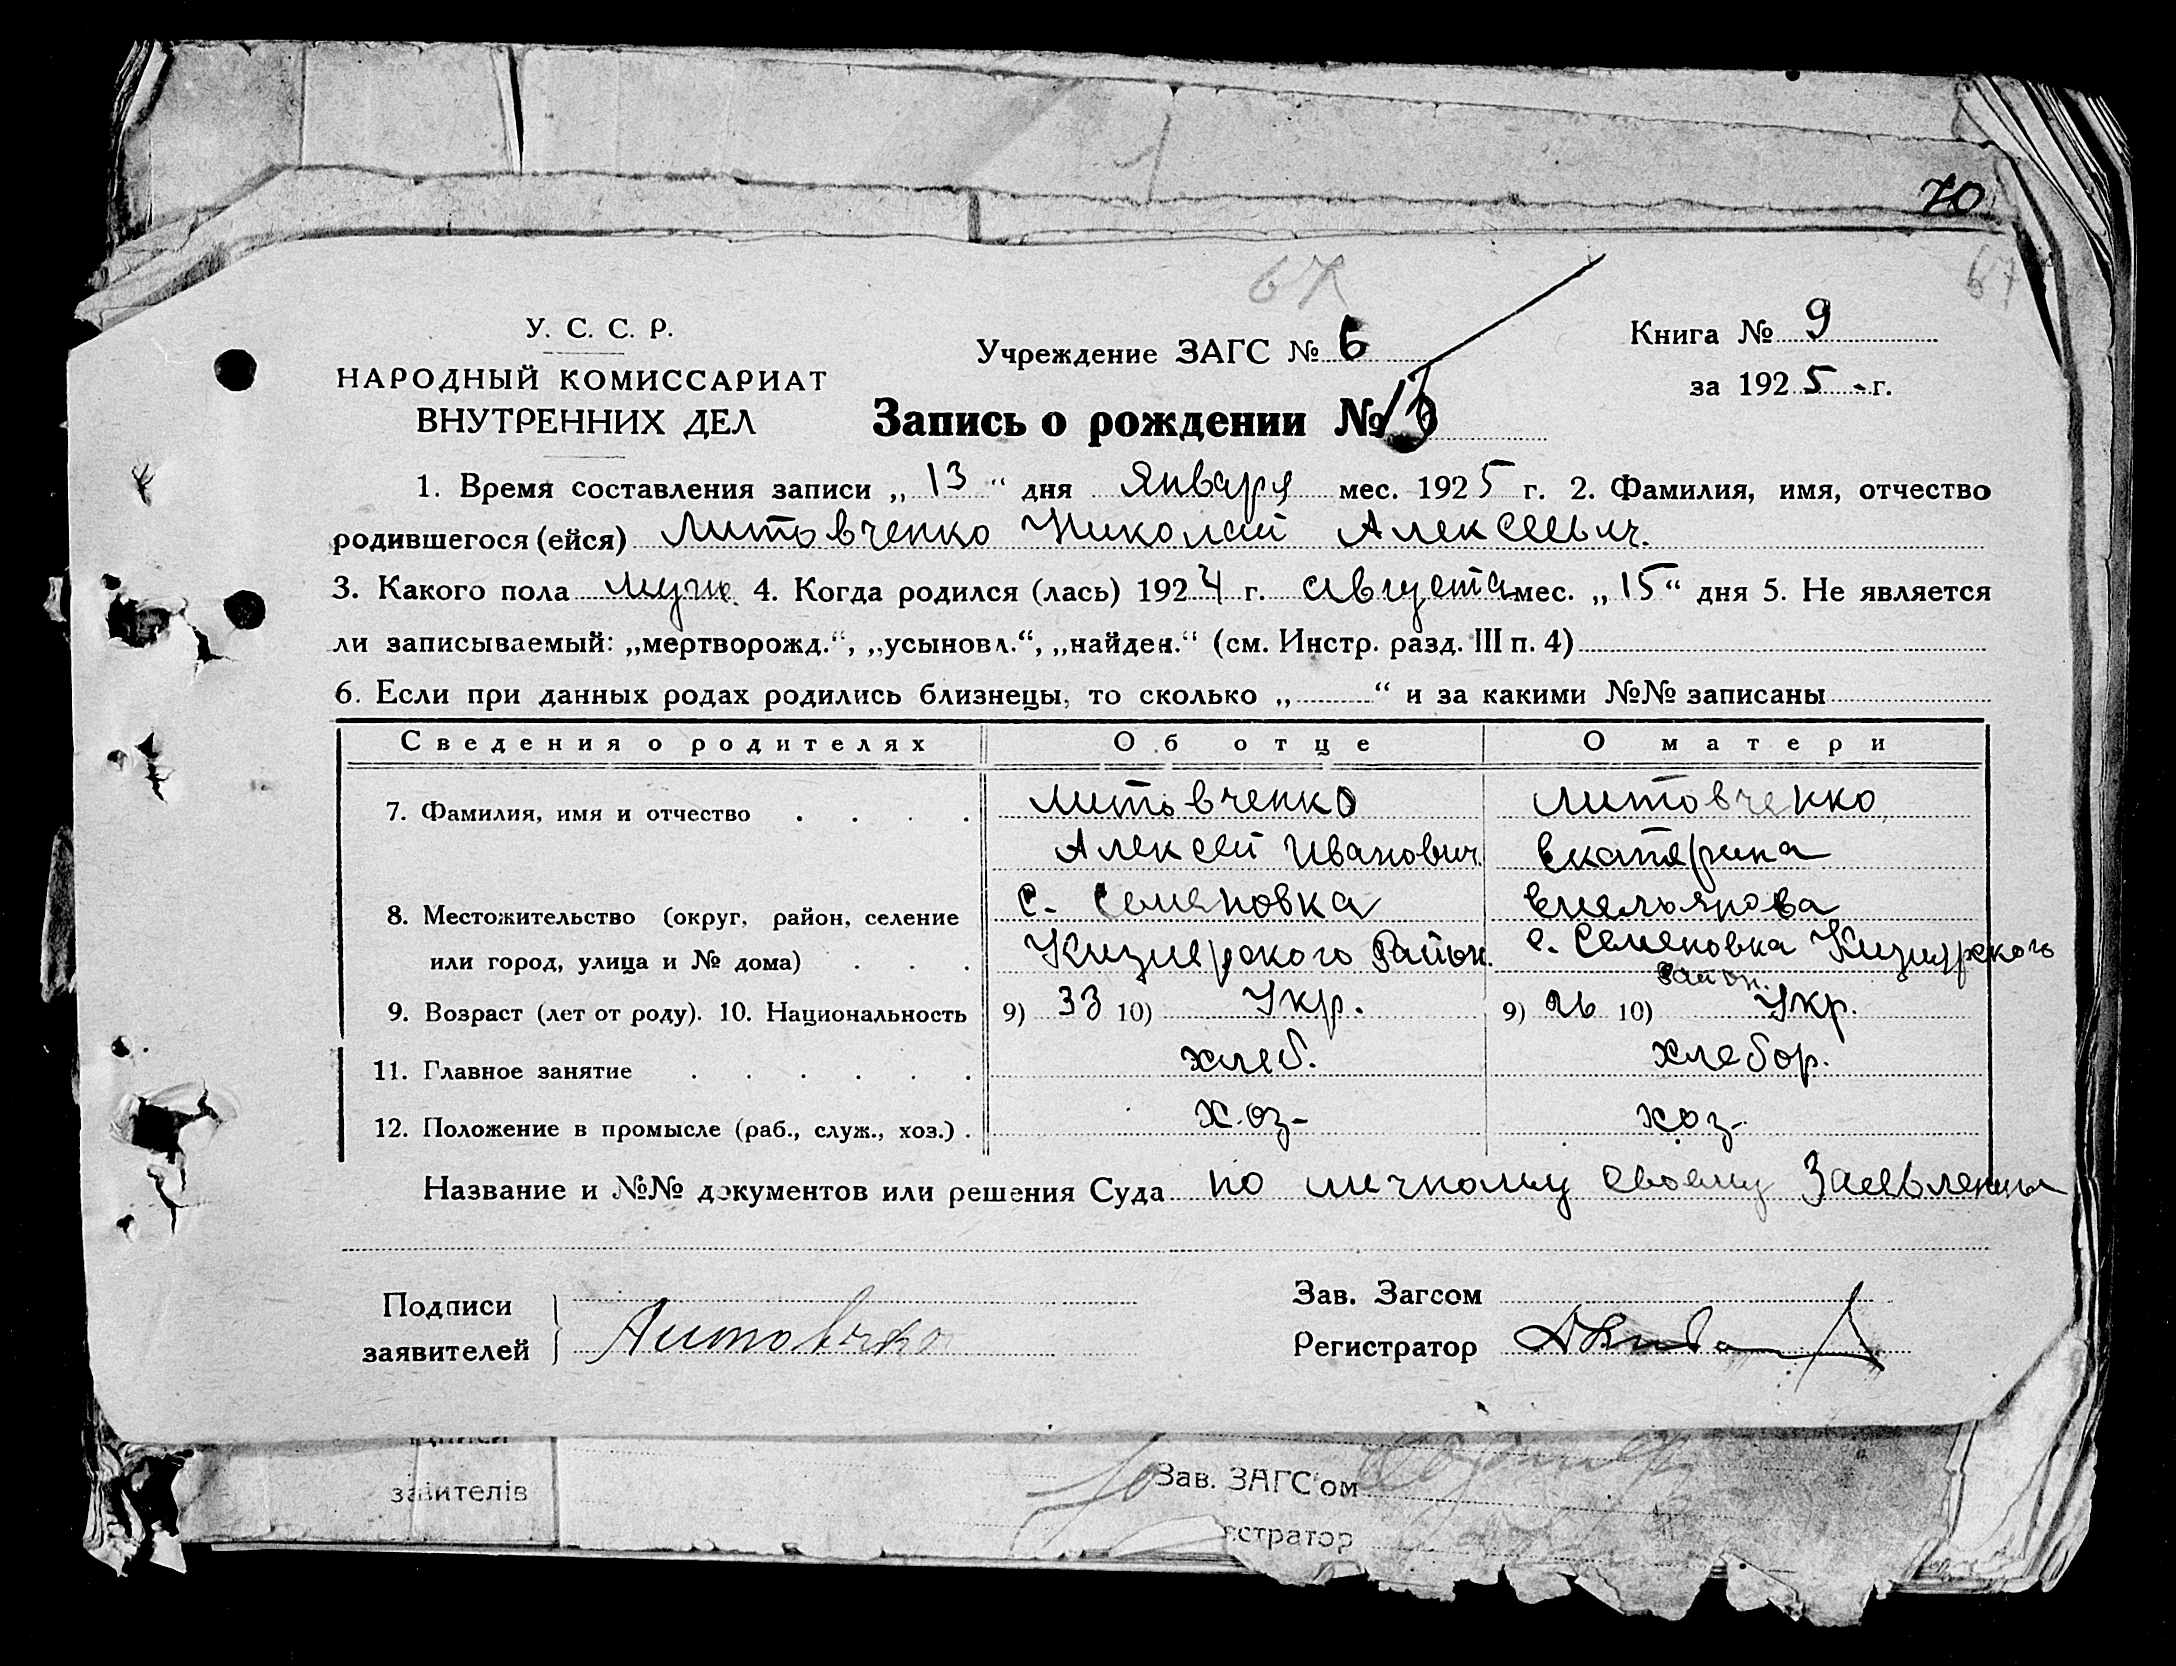 70
67
67
У. С. С. Р.
НАРОДНЫЙ КОМИССАРИАТ
ВНУТРЕННИХ ДЕЛ
Учреждение ЗАГС № 6
Книга № 9
за 1925 г.
Запись о рождении №
1. Время составления записи „13“ дня Января мес. 1925 г. 2. Фамилия, имя, отчество
родившегося (ейся) Литовченко Николай Алексеевич.
3. Какого пола муж. 4. Когда родился (лась) 1924 г. Августа мес. „15“ дня 5. Не является
ли записываемый: „мертворожд.“, „усыновл.“, „найден.“ (см. Инстр. разд. III п. 4)
6. Если при данных родах родились близнецы, то сколько „ “ и за какими №№ записаны
Сведения о родителях Об отце О матери
7. Фамилия, имя и отчество Литовченко Литовченко
Алексей Иванович. Екатярина
8. Местожительство (округ, район, селение с. Семеновка Емельянова
или город, улица и № дома) Кизиярского Район. с. Семеновка Кизиярского
Район.
9. Возраст (лет от роду). 10. Национальность 9) 33 10) Укр. 9) 26 10) Укр.
11. Главное занятие хлеб. хлебор.
12. Положение в промысле (раб., служ., хоз.) хоз- хоз-
Название и №№ документов или решения Суда по личному своему Заевлению
Подписи
заявителей Литовчко
Зав. Загсом
Регистратор
Зав. ЗАГС'ом